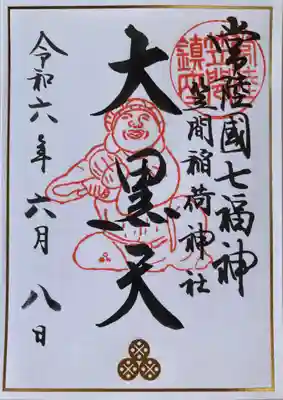 常陸國七福神
笠間稲荷神社
大黒天
令和六年六月八日